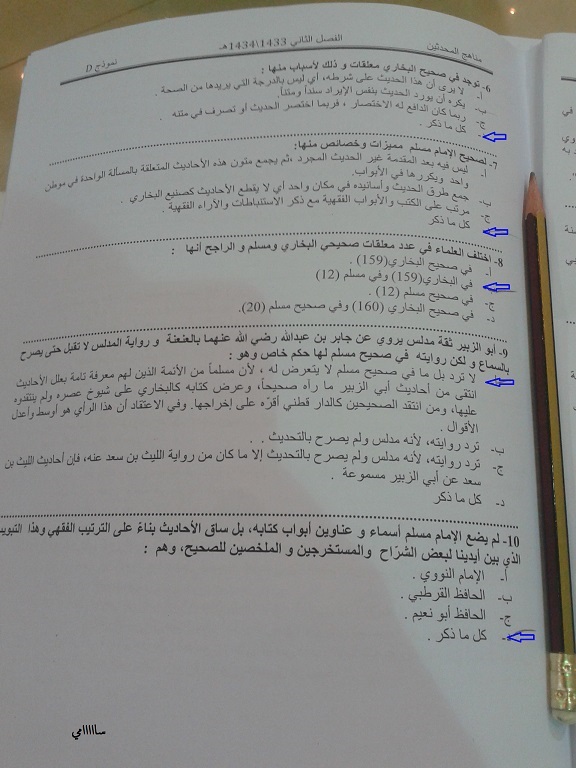 مناهج المحدثين
الفصل الثاني 1433\1434هـ
نموذج D
6- توجد في صحيح البخاري معلقات و ذلك لأسباب منها :
أ- لا يرى أن هذا الحديث على شرطه، أي ليس بالدرجة التي يريدها من الصحة .
ب- يكره أن يورد الحديث بنفس الإيراد سنداً ومتناً.
ج- ربما كان الدافع له الاختصار ، فربما اختصر الحديث أو تصرف في متنه .
كل ما ذكر .
7- لصحيح الإمام مسلم مميزات وخصائص منها:
أ- ليس فيه بعد المقدمة غير الحديث المجرد ،ثم يجمع متون هذه الأحاديث المتعلقة بالمسألة الواحدة في موطن
واحد ويكررها في الأبواب.
ب- جمع طرق الحديث وأسانيده في مكان واحد أي لا يقطع الأحاديث كصنيع البخاري .
ج- مرتب على الكتب والأبواب الفقهية مع ذكر الاستنباطات والآراء الفقهية .
كل ما ذكر
8- اختلف العلماء في عدد معلقات صحيحي البخاري ومسلم و الراجح أنها :
أ- في صحيح البخاري (159) .
في البخاري(159) وفي مسلم (12)
ج- في صحيح مسلم (12) .
د- في صحيح البخاري (160) وفي صحيح مسلم (20).
9- أبو الزبير ثقة مدلس يروي عن جابر بن عبدالله رضي الله عنهما بالعنعنة و رواية المدلس لا تقبل حتى يصرح
بالسماع و لكن روايته في صحيح مسلم لها حكم خاص وهو :
لا ترد بل ما في صحيح مسلم لا يتعرض له ، لأن مسلماً من الأئمة الذين لهم معرفة تامة بعلل الأحاديث
انتقى من أحاديث أبي الزبير ما رآه صحيحاً، وعرض كتابه كالبخاري على شيوخ عصره ولم ينتقدوه
عليها، ومن انتقد الصحيحين كالدار قطني أقرّه على إخراجها. وفي الاعتقاد أن هذا الرأي هو أوسط وأعدل
الأقوال .
ب- ترد روايته، لأنه مدلس ولم يصرح بالتحديث . .
ج- ترد روايته، لأنه مدلس ولم يصرح بالتحديث إلا ما كان من رواية الليث بن سعد عنه، فإن أحاديث الليث بن
سعد عن أبي الزبير مسموعة .
د- كل ما ذكر
10- لم يضع الإمام مسلم أسماء و عناوين أبواب كتابه، بل ساق الأحاديث بناءً على الترتيب الفقهي وهذا التبويب
الذي بين أيدينا لبعض الشرّاح والمستخرجين و الملخصين للصحيح، وهم :
أ- الإمام النووي .
ب- الحافظ القرطبي .
ج- الحافظ أبو نعيم .
كل ما ذكر .
سااااامي